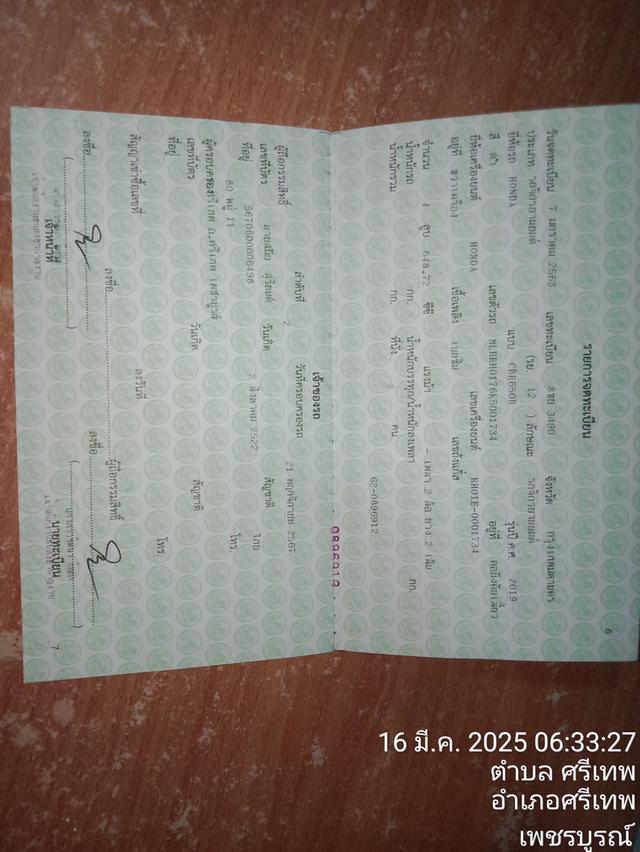 6
รายการจดทะเบียน
วันจดทะเบียน 7 มกราคม 2563 เลขทะเบียน 8ขย 3490 จังหวัด กรุงเทพมหานคร
ประเภท รถจักรยานยนต์ (รย. 12 ) ลักษณะ รถจักรยานยนต์
ยี่ห้อรถ HONDA แบบ CBR650R รุ่นปี ค.ศ. 2019
สี ดำ เลขตัวรถ อยู่ที่ คอบังคับเลี้ยว
ยี่ห้อเครื่องยนต์ HONDA เลขเครื่องยนต์ RH01E-0001734
อยู่ที่ ขวาเครื่อง เชื้อเพลิง เบนซิน เลขถังแก๊ส
จำนวน 4 สูบ 648.72 ซีซี แรงม้า - เพลา 2 ล้อ ยาง 2 เส้น
น้ำหนักรถ กก. น้ำหนักบรรทุก/น้ำหนักลงเพลา กก.
น้ำหนักรวม กก. ที่นั่ง 2 คน
62-0896912
0896912
เจ้าของรถ
ลำดับที่ 2 วันที่ครอบครองรถ 21 พฤศจิกายน
ผู้ถือกรรมสิทธิ์ นายสมัย
เลขที่บัตร 5670600006498 วันเกิด 2 สิงหาคม 2522 สัญชาติ ไทย
ที่อยู่ 80 หมู่ 11 อ.ศรีเทพ โทร.
ผู้ครอบครอง
เลขที่บัตร วันเกิด สัญชาติ
ที่อยู่ โทร.
สัญญาเช่าซื้อเลขที่ ลงวันที่
ลงชื่อ ผู้ถือกรรมสิทธิ์
ลงชื่อ ลงชื่อ
เจ้าหน้าที่ นายทะเบียน
7
16 มี.ค. 2025 06:33:27
ตำบล ศรีเทพ
อำเภอศรีเทพ
เพชรบูรณ์